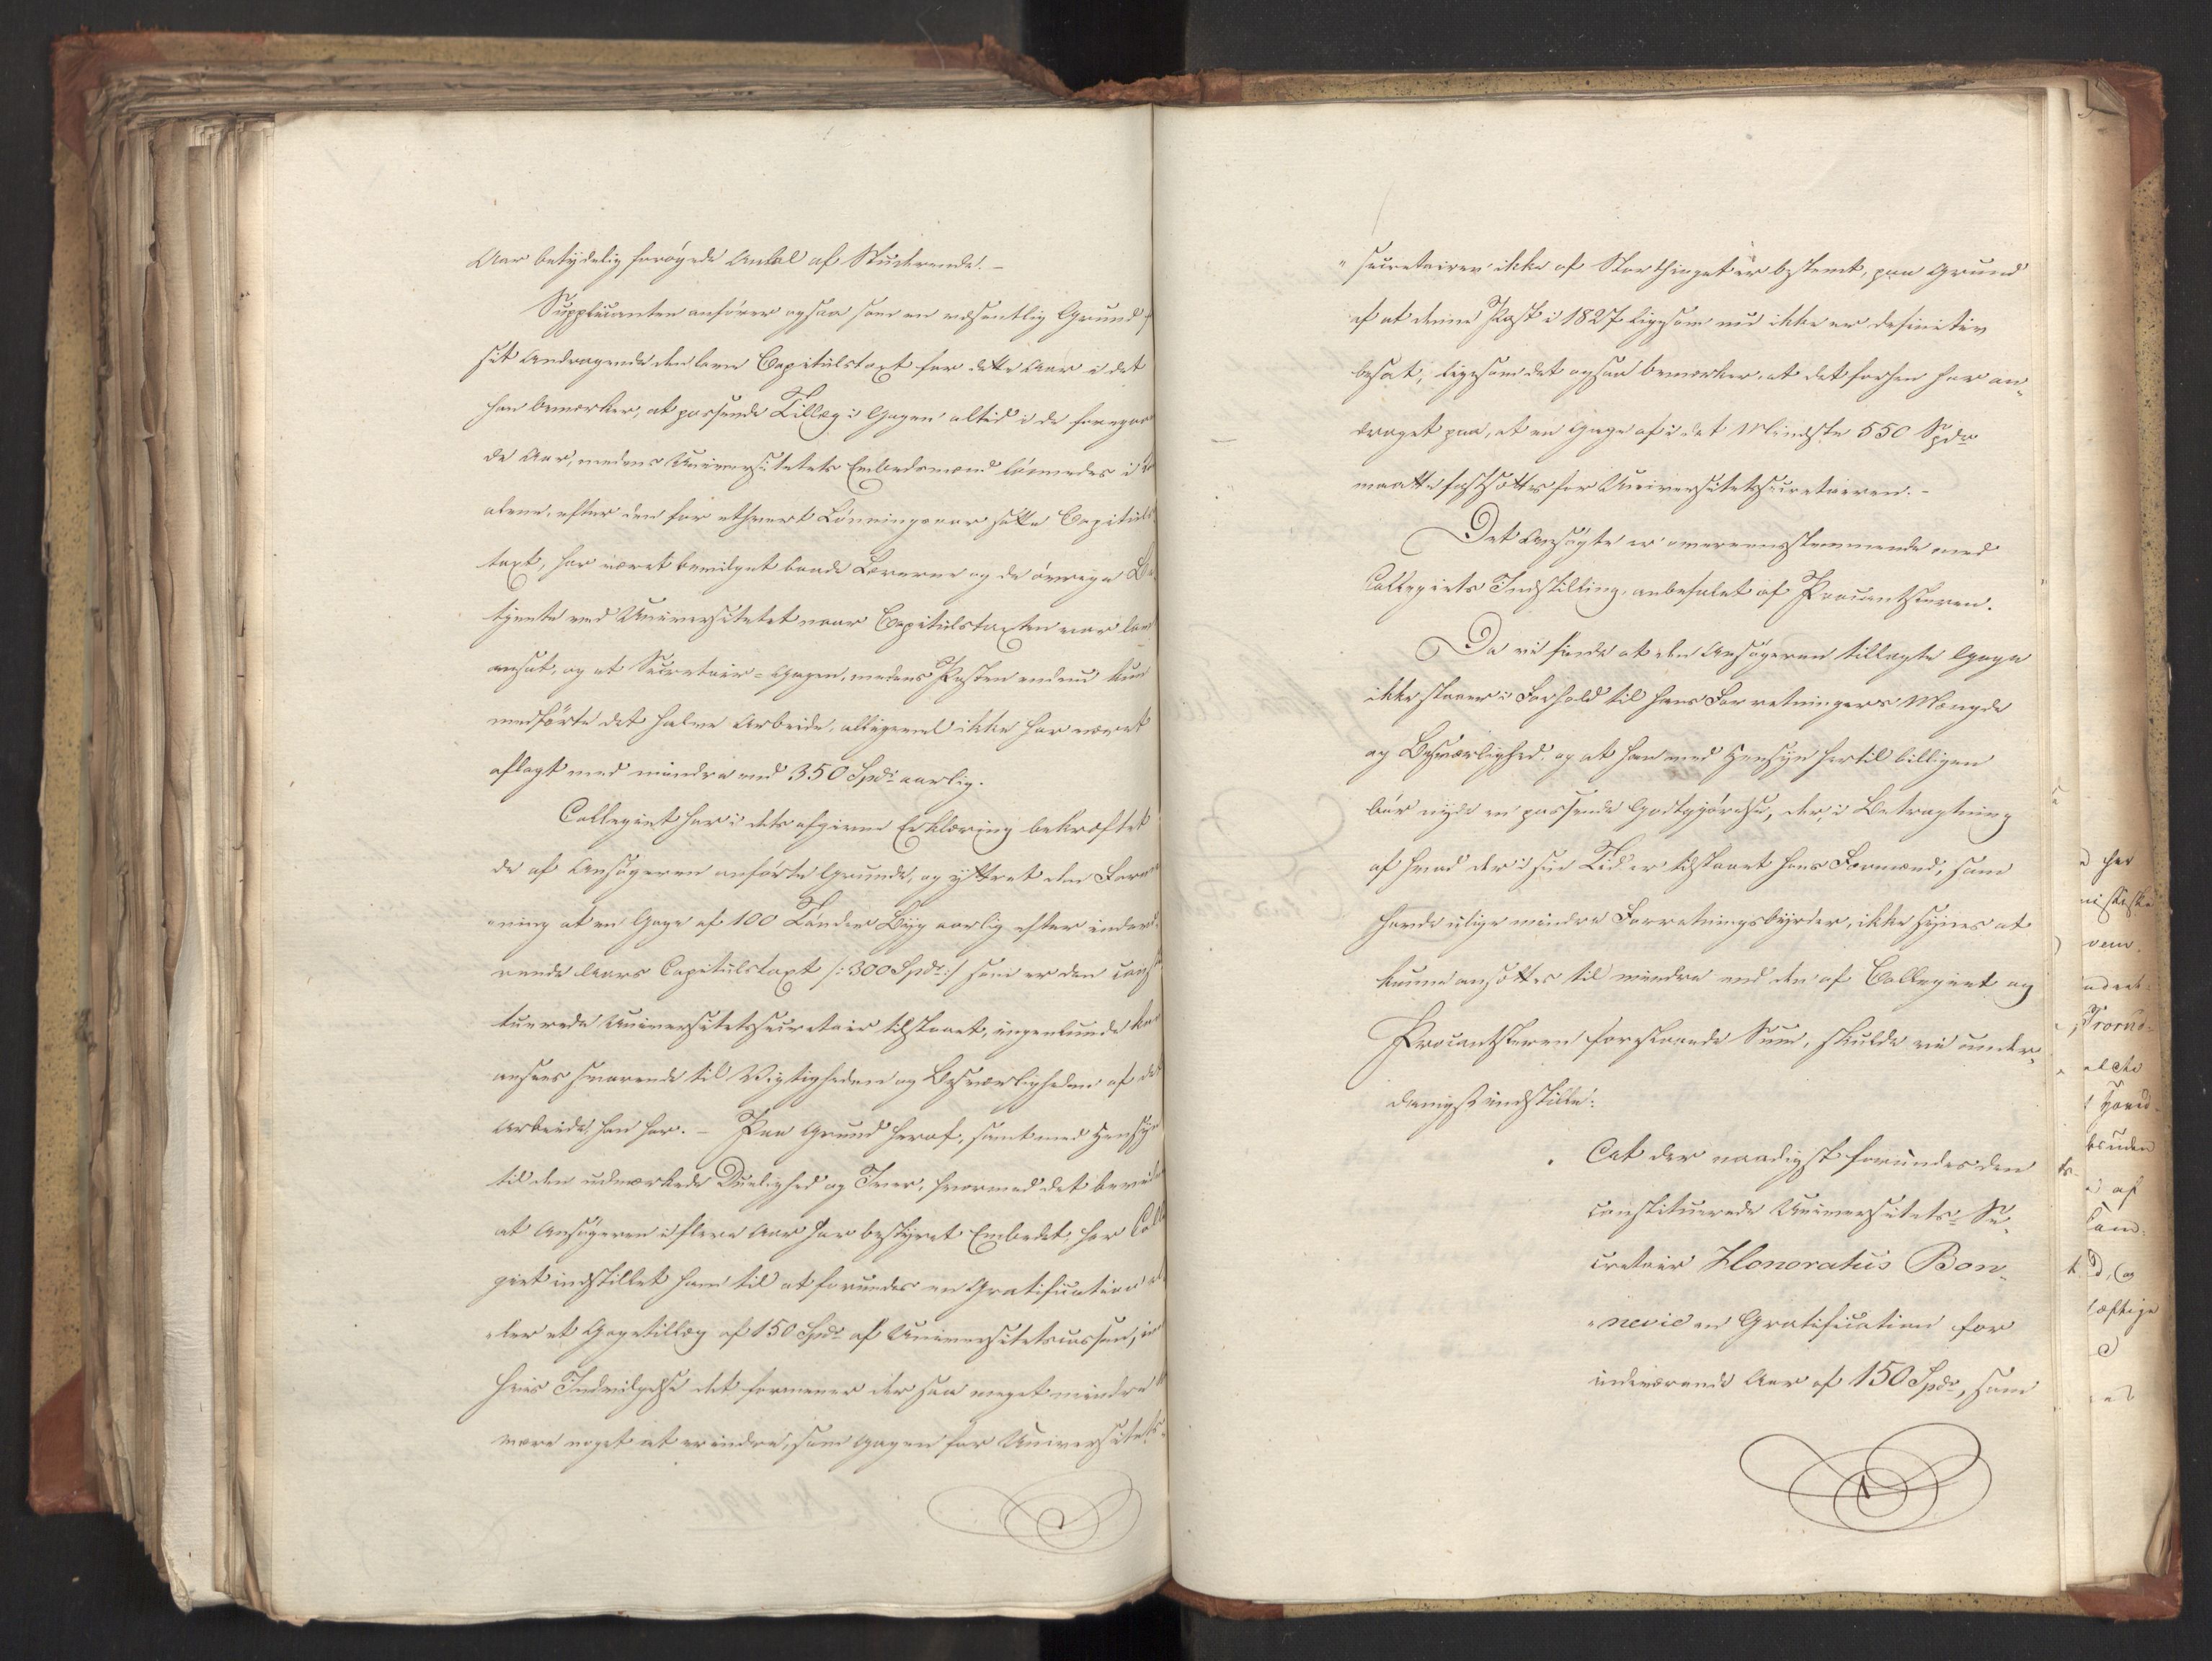 Aar betydelig forøgede Antal af Studerende. –
Supplicanten anfører ogsaa som en væsentlig Grund f
sit Andragende den lave Capitulstaxt for dette Aar i det
han bemærker, at passende Tillæg i Gagen altid i de foregaa
de Aar, medens Universitetets Embedsmænd lønnedes i
alene, efter den for ethvert Lønningsaar satte Capituls
taxt, har været bevilget baade Lærerne og de øvrige Be
tjente ved Universitetet naar Capitulstaxten var lav
ansat, og at Secretair-Gagen, medens Posten endnu kun
medførte det halve Arbeide, alligevel ikke har været
aflagt med mindre end 350 Spdr aarlig.
Collegiet har i dets afgivne Erklæring bekræftet
de af Ansøgeren anførte Grunde, og yttret den For
ning at en Gage af 100 Tønder Byg aarlig efter indev
rende Aars Capitulstaxt /: 300 Spdr :/ som er den const
tuerede Universitetssecretair tilstaaet, ingenlunde kan
ansees svarende til Vigtigheden og Besværligheden af det
Arbeide, han har. – Paa Grund heraf, samt med Hensyn
til den udmærkede Duelighed og Iver, hvormed det bevidn
at Ansøgeren i flere Aar har bestyret Embedet, har Colle
giet indstillet ham til at forundes en Gratification el
ler et Gagetillæg af 150 Spdr af Universitetscassen, imod
hvis Indvilgelse det formener der saa meget mindre
være noget at erindre, som Gagen for Universitets-
"secretairen ikke af Storthinget er bestemt, paa Grund
af at denne Post i 1827 ligesom nu ikke er definitiv
besat, ligesom det ogsaa bemærker, at det forhen har an-
draget paa, at en Gage af i det Mindste 550 Spdr
maatte fastsættes for Universitetssecretairen. –
Det Ansøgte er overeensstemmende med
Collegiets Indstilling, anbefalet af Procantsleren.
Da vi finde at den Ansøgeren tillagte Gage
ikke staaer i Forhold til hans Forretningers Mængde
og Besværlighed, og at han med Hensyn hertil billigen
bør nyde en passende Godtgjørelse, der, i Betragtning
af hvad der i sin Tid er tilstaaet hans Formænd, som
havde ulige mindre Forretningsbyrder, ikke synes at
kunne ansættes til mindre end den af Collegiet og
Procantsleren foreslaaede Sum, skulde vi under-
danigst indstille:
At der naadigst forundes den
constituerede Universitets-Se-
cretair Honoratus Bon-
"nevie en Gratification for
indeværende Aar af 150 Spdr, som